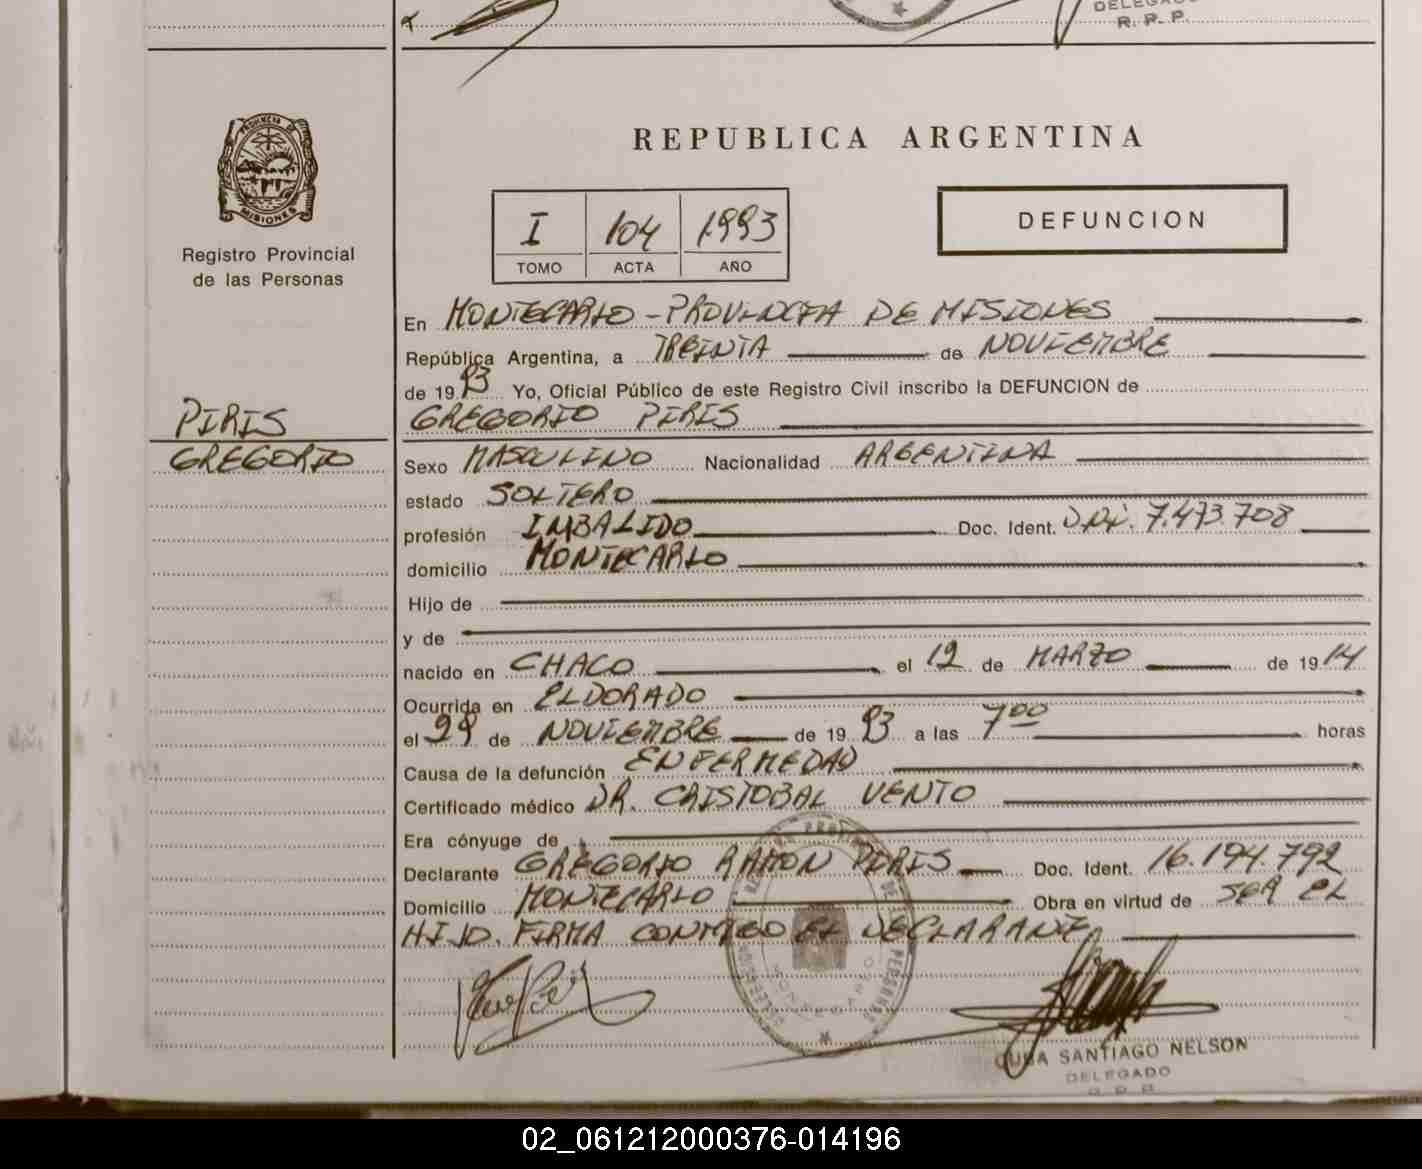 DELEGADO
R. P. P.
PROVINCIA DE
MISIONES
Registro Provincial
de las Personas
REPUBLICA ARGENTINA
I 104 1993
TOMO ACTA AÑO
DEFUNCION
En MONTECARLO - PROVINCIA DE MISIONES
República Argentina, a TREINTA de NOVIEMBRE
de 1993 Yo, Oficial Público de este Registro Civil inscribo la DEFUNCION de
PIRIS
GREGORIO
GREGORIO PIRIS
Sexo MASCULINO Nacionalidad ARGENTINA
estado SOLTERO
profesión IMBALIDO Doc. Ident. D.N.I. 7.473.708
domicilio MONTECARLO
Hijo de
y de
nacido en CHACO el 12 de MARZO de 1914
Ocurrida en ELDORADO
el 29 de NOVIEMBRE de 1993 a las 7 00 horas
Causa de la defunción ENFERMEDAD
Certificado médico DR. CRISTOBAL VENTO
Era cónyuge de
Declarante GREGORIO RAMON PIRIS Doc. Ident. 16.194.792
Domicilio MONTECARLO Obra en virtud de SER EL
HIJO. FIRMA CONMIGO EL DECLARANTE
MONTECARLO
SANTIAGO NELSON
DELEGADO
02_061212000376-014196